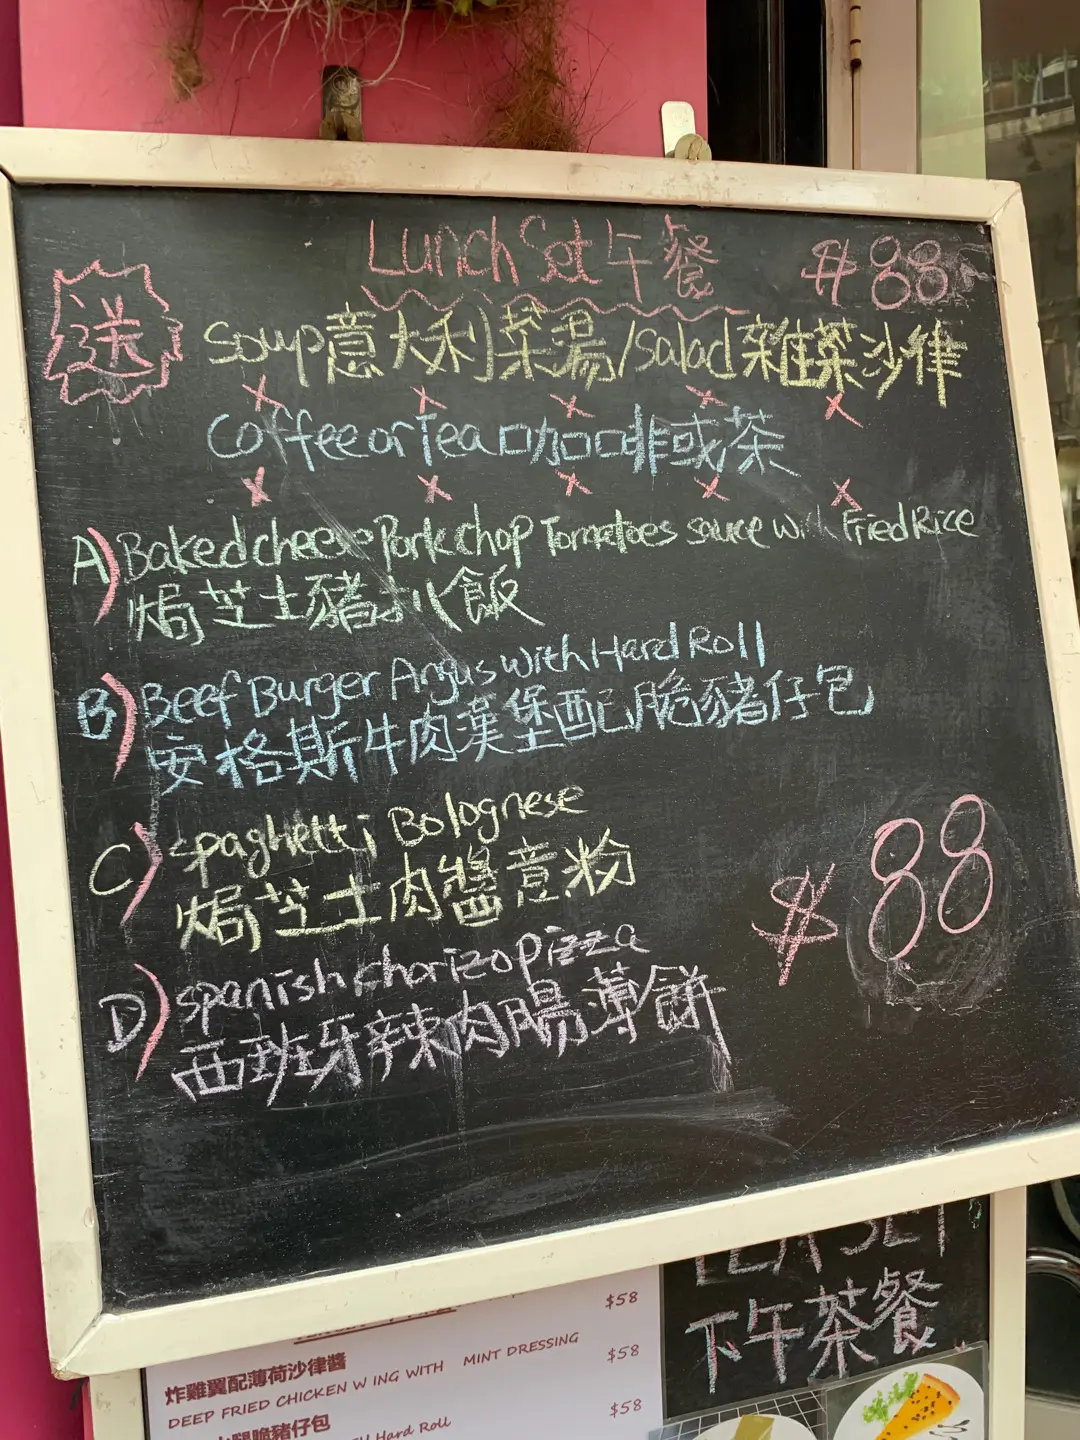 Lunch Set 午餐 $88
送
Soup 意大利菜湯/Salad 雜菜沙律
Coffee or Tea 咖啡或茶
A) Baked cheese Pork chop Tomatoes sauce with Fried Rice
焗芝士豬扒飯
B) Beef Burger Angus with Hard Roll
安格斯牛肉漢堡配脆豬仔包
C) Spaghetti Bolognese
焗芝士肉醬意粉
$88
D) Spanish Chorizo pizza
西班牙辣肉腸薄餅
TEA SET
下午茶餐
$58
炸雞翼配薄荷沙律醬
DEEP FRIED CHICKEN W ING WITH MINT DRESSING $58
腿脆豬仔包 $58
Hard Roll